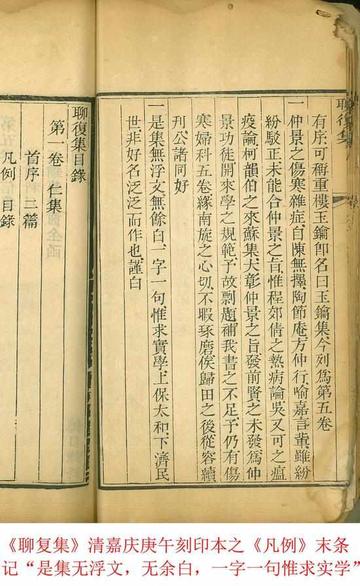 有序可稱重樓玉鑰卽名曰玉鑰集今列為第五卷
一仲景之傷寒雜症自陳無擇陶節庵方仲行喻嘉言輩雖紛
紛駁正未能合仲景之旨惟程郊倩之熱病論吳又可之瘟
疫論柯韻伯之來蘇集大彰仲景之旨發前賢之未發為仲
景功徒開來學之規範予故剽題補我書之不足予仍有傷
寒婦科五卷緣南旋之心切不暇琢磨俟歸田之後從容續
刊公諸同好
一是集無浮文無餘白一字一句惟求實學上保太和下濟民
世非好名泛泛而作也謹白
聊復集目錄
第一卷 仁集
首序 三篇
凡例 目錄
聊復集
《聊复集》清嘉庆庚午刻印本之《凡例》末条
记“是集无浮文，无余白，一字一句惟求实学”